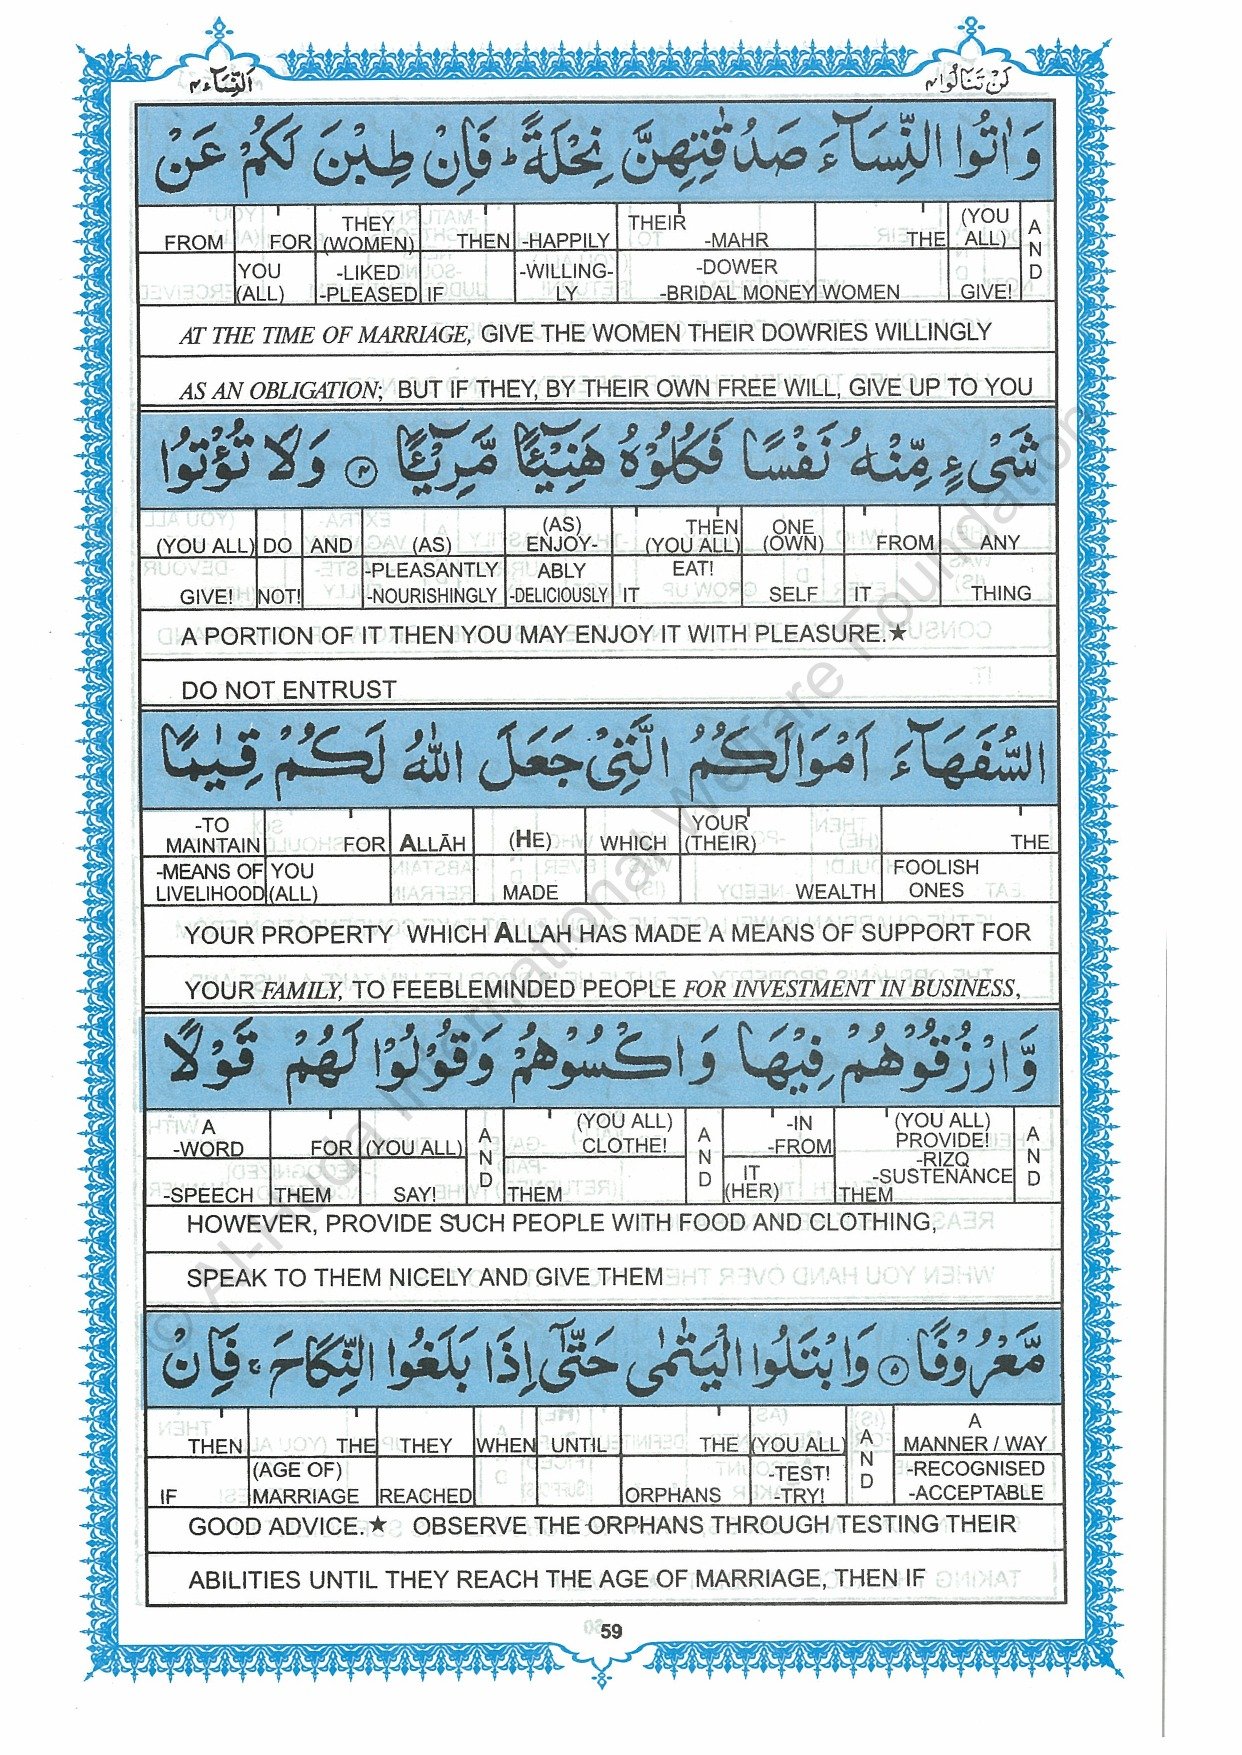 اَلنِّسَآء ٤
لَنْ تَنَالُوا ٤
وَاٰتُوا النِّسَآءَ صَدُقٰتِهِنَّ نِحْلَةً ؕ فَاِنْ طِبْنَ لَكُمْ عَنْ
FROM FOR THEY (WOMEN) THEN -HAPPILY THEIR -MAHR THE (YOU ALL) AND
YOU (ALL) -LIKED -PLEASED IF -WILLING-LY -DOWER -BRIDAL MONEY WOMEN GIVE!
AT THE TIME OF MARRIAGE, GIVE THE WOMEN THEIR DOWRIES WILLINGLY
AS AN OBLIGATION; BUT IF THEY, BY THEIR OWN FREE WILL, GIVE UP TO YOU
شَیْءٍ مِّنْهُ نَفْسًا فَكُلُوْهُ هَنِیْٓـًٔا مَّرِیْٓـًٔا ۴ وَلَا تُؤْتُوا
(YOU ALL) DO AND (AS) (AS) ENJOY- THEN (YOU ALL) ONE (OWN) FROM ANY
GIVE! NOT! -PLEASANTLY -NOURISHINGLY ABLY -DELICIOUSLY IT EAT! SELF IT THING
A PORTION OF IT THEN YOU MAY ENJOY IT WITH PLEASURE.★
DO NOT ENTRUST
السُّفَهَآءَ اَمْوَالَكُمُ الَّتِیْ جَعَلَ اللّٰهُ لَكُمْ قِیٰمًا
-TO MAINTAIN FOR ALLĀH (HE) WHICH YOUR (THEIR) THE
-MEANS OF LIVELIHOOD YOU (ALL) MADE WEALTH FOOLISH ONES
YOUR PROPERTY WHICH ALLAH HAS MADE A MEANS OF SUPPORT FOR
YOUR FAMILY, TO FEEBLEMINDED PEOPLE FOR INVESTMENT IN BUSINESS,
وَّارْزُقُوْهُمْ فِیْهَا وَاكْسُوْهُمْ وَقُوْلُوْا لَهُمْ قَوْلًا
A -WORD FOR (YOU ALL) AND (YOU ALL) CLOTHE! AND -IN -FROM (YOU ALL) PROVIDE! AND
-SPEECH THEM SAY! THEM IT (HER) -RIZQ -SUSTENANCE THEM
HOWEVER, PROVIDE SUCH PEOPLE WITH FOOD AND CLOTHING,
SPEAK TO THEM NICELY AND GIVE THEM
مَّعْرُوْفًا ۵ وَابْتَلُوا الْیَتٰمٰی حَتّٰۤی اِذَا بَلَغُوا النِّكَاحَ ۚ فَاِنْ
THEN THE THEY WHEN UNTIL THE (YOU ALL) AND A MANNER / WAY
IF (AGE OF) MARRIAGE REACHED ORPHANS -TEST! -TRY! -RECOGNISED -ACCEPTABLE
GOOD ADVICE.★ OBSERVE THE ORPHANS THROUGH TESTING THEIR
ABILITIES UNTIL THEY REACH THE AGE OF MARRIAGE, THEN IF
59
© Al-Huda International Welfare Foundation